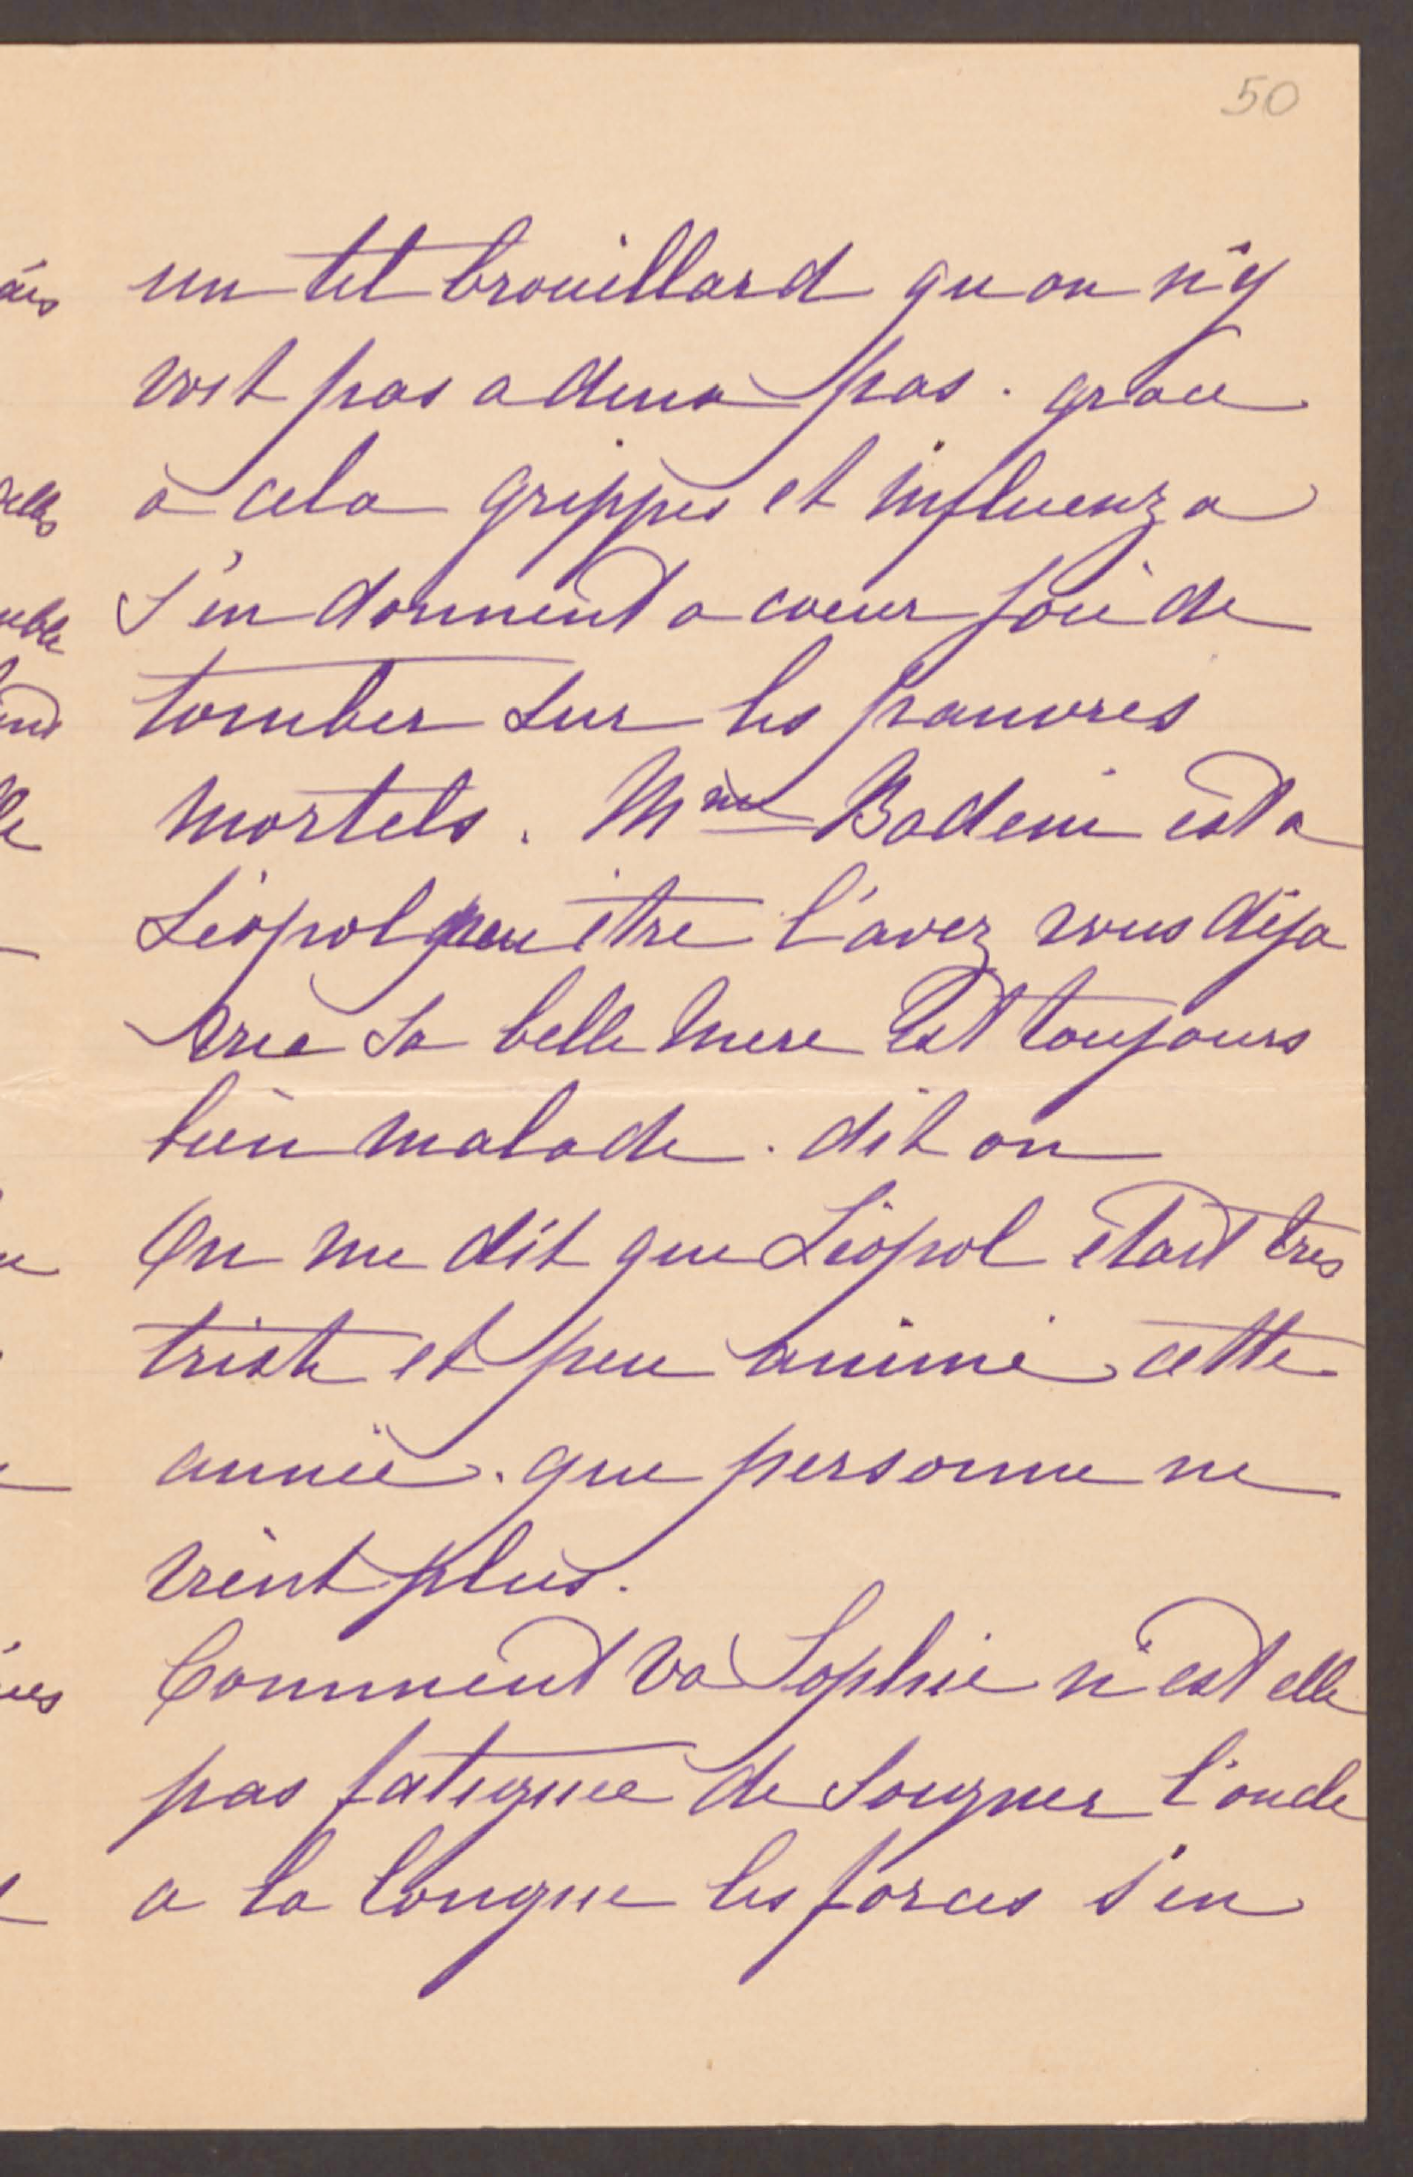 50
un tel brouillard qu on n'y
voit pas a deux pas. grace
à cela grippes et influenza
s'en donnent a coeur joie de
tomber sur les pauvres
mortels. Mme Badeni est a
Léopol peu être l'avez vous déja
vue sa belle mere est toujours
bien malade. dit on
On me dit que Léopol était tres
triste et peu animé cette
année. que personne ne
vient plus.
Comment va Sophie n'est elle
pas fatiguée de soigner l'oncle
a la longue les forces s'en